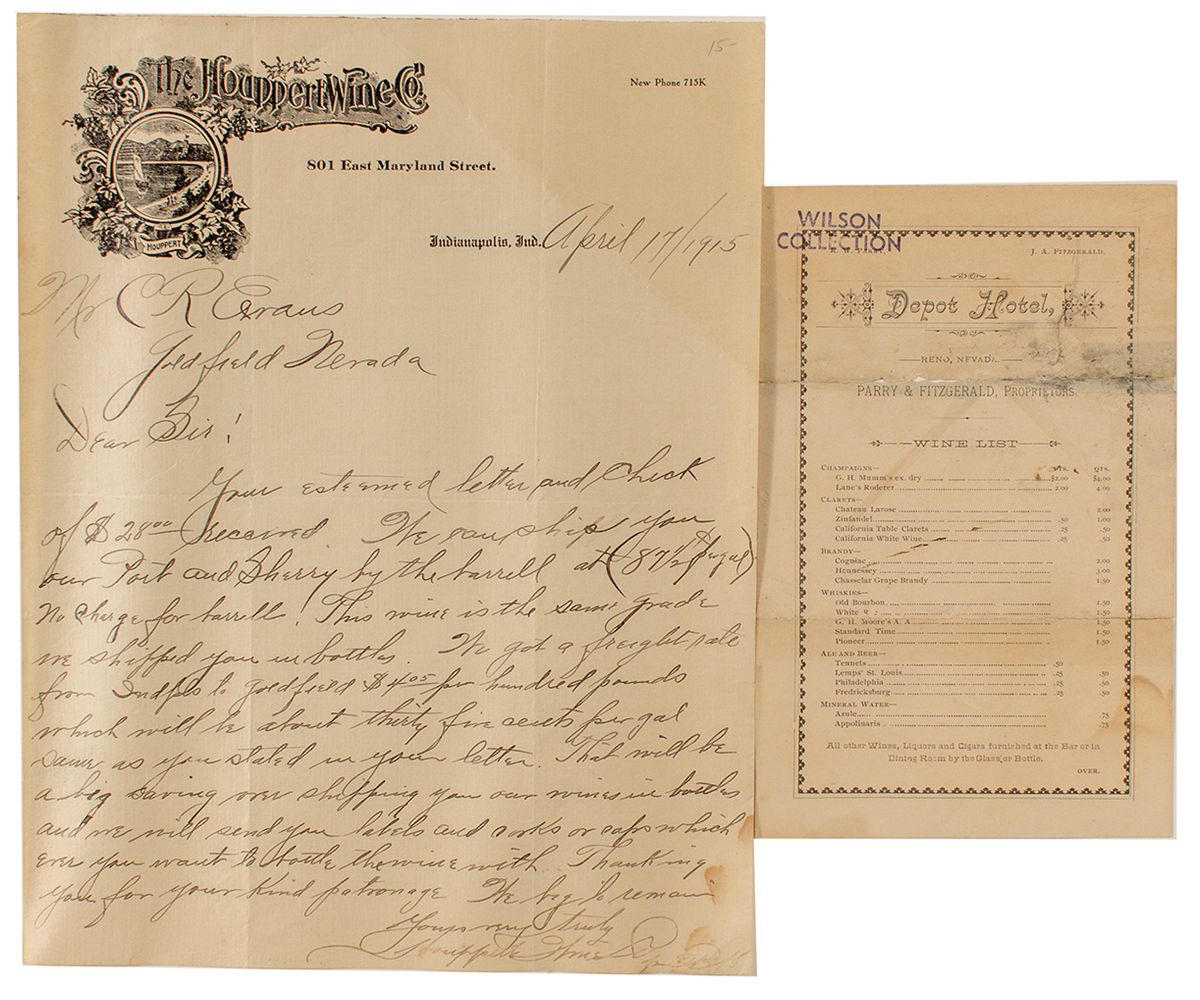 15-
The Houppert Wine Co.
New Phone 715K
801 East Maryland Street.
HOUPPERT
Indianapolis, Ind. April 17/1915
Mr C R Evans
Goldfield Nevada
Dear Sir!
Your esteemed letter and Check
of $28.00 received. We can ship you
our Port and Sherry by the barrell at (87½¢ per gal)
No Charge for barrell! This wine is the same grade
we shipped you in bottles. We got a freight rate
from Indpls to Goldfield $4.05 per hundred pounds
which will be about thirty five cents per gal
same as you stated in your letter. That will be
a big saving over shipping you our wines in bottles
and we will send you labels and corks or caps which
ever you want to bottle the wine with. Thanking
you for your kind patronage We beg to remain
Yours very truly
Houppert Wine Co
WILSON
COLLECTION
J. A. FITZGERALD.
Depot Hotel,
RENO, NEVADA.
PARRY & FITZGERALD, PROPRIETORS.
WINE LIST
CHAMPAIGNS— PTS. QTS.
G. H. Mumm's ex. dry $2.00 $4.00
Lane's Roderer 2.00 4.00
CLARETS—
Chateau Larose 2.00
Zinfandel .50 1.00
California Table Clarets .25 .50
California White Wine .25 .50
BRANDY—
Cogniac 2.00
Hennessey 3.00
Chasselar Grape Brandy 1.50
WHISKIES—
Old Bourbon 1.50
White 1.50
G. H. Moore's A. A 1.50
Standard Time 1.50
Pioneer 1.50
ALE AND BEER—
Tennets .50
Lemps' St. Louis .25 .50
Philadelphia .25 .50
Fredericksburg .25 .50
MINERAL WATER—
Azule .75
Appolinaris .75
All other Wines, Liquors and Cigars furnished at the Bar or in
Dining Room by the Glass or Bottle.
OVER.